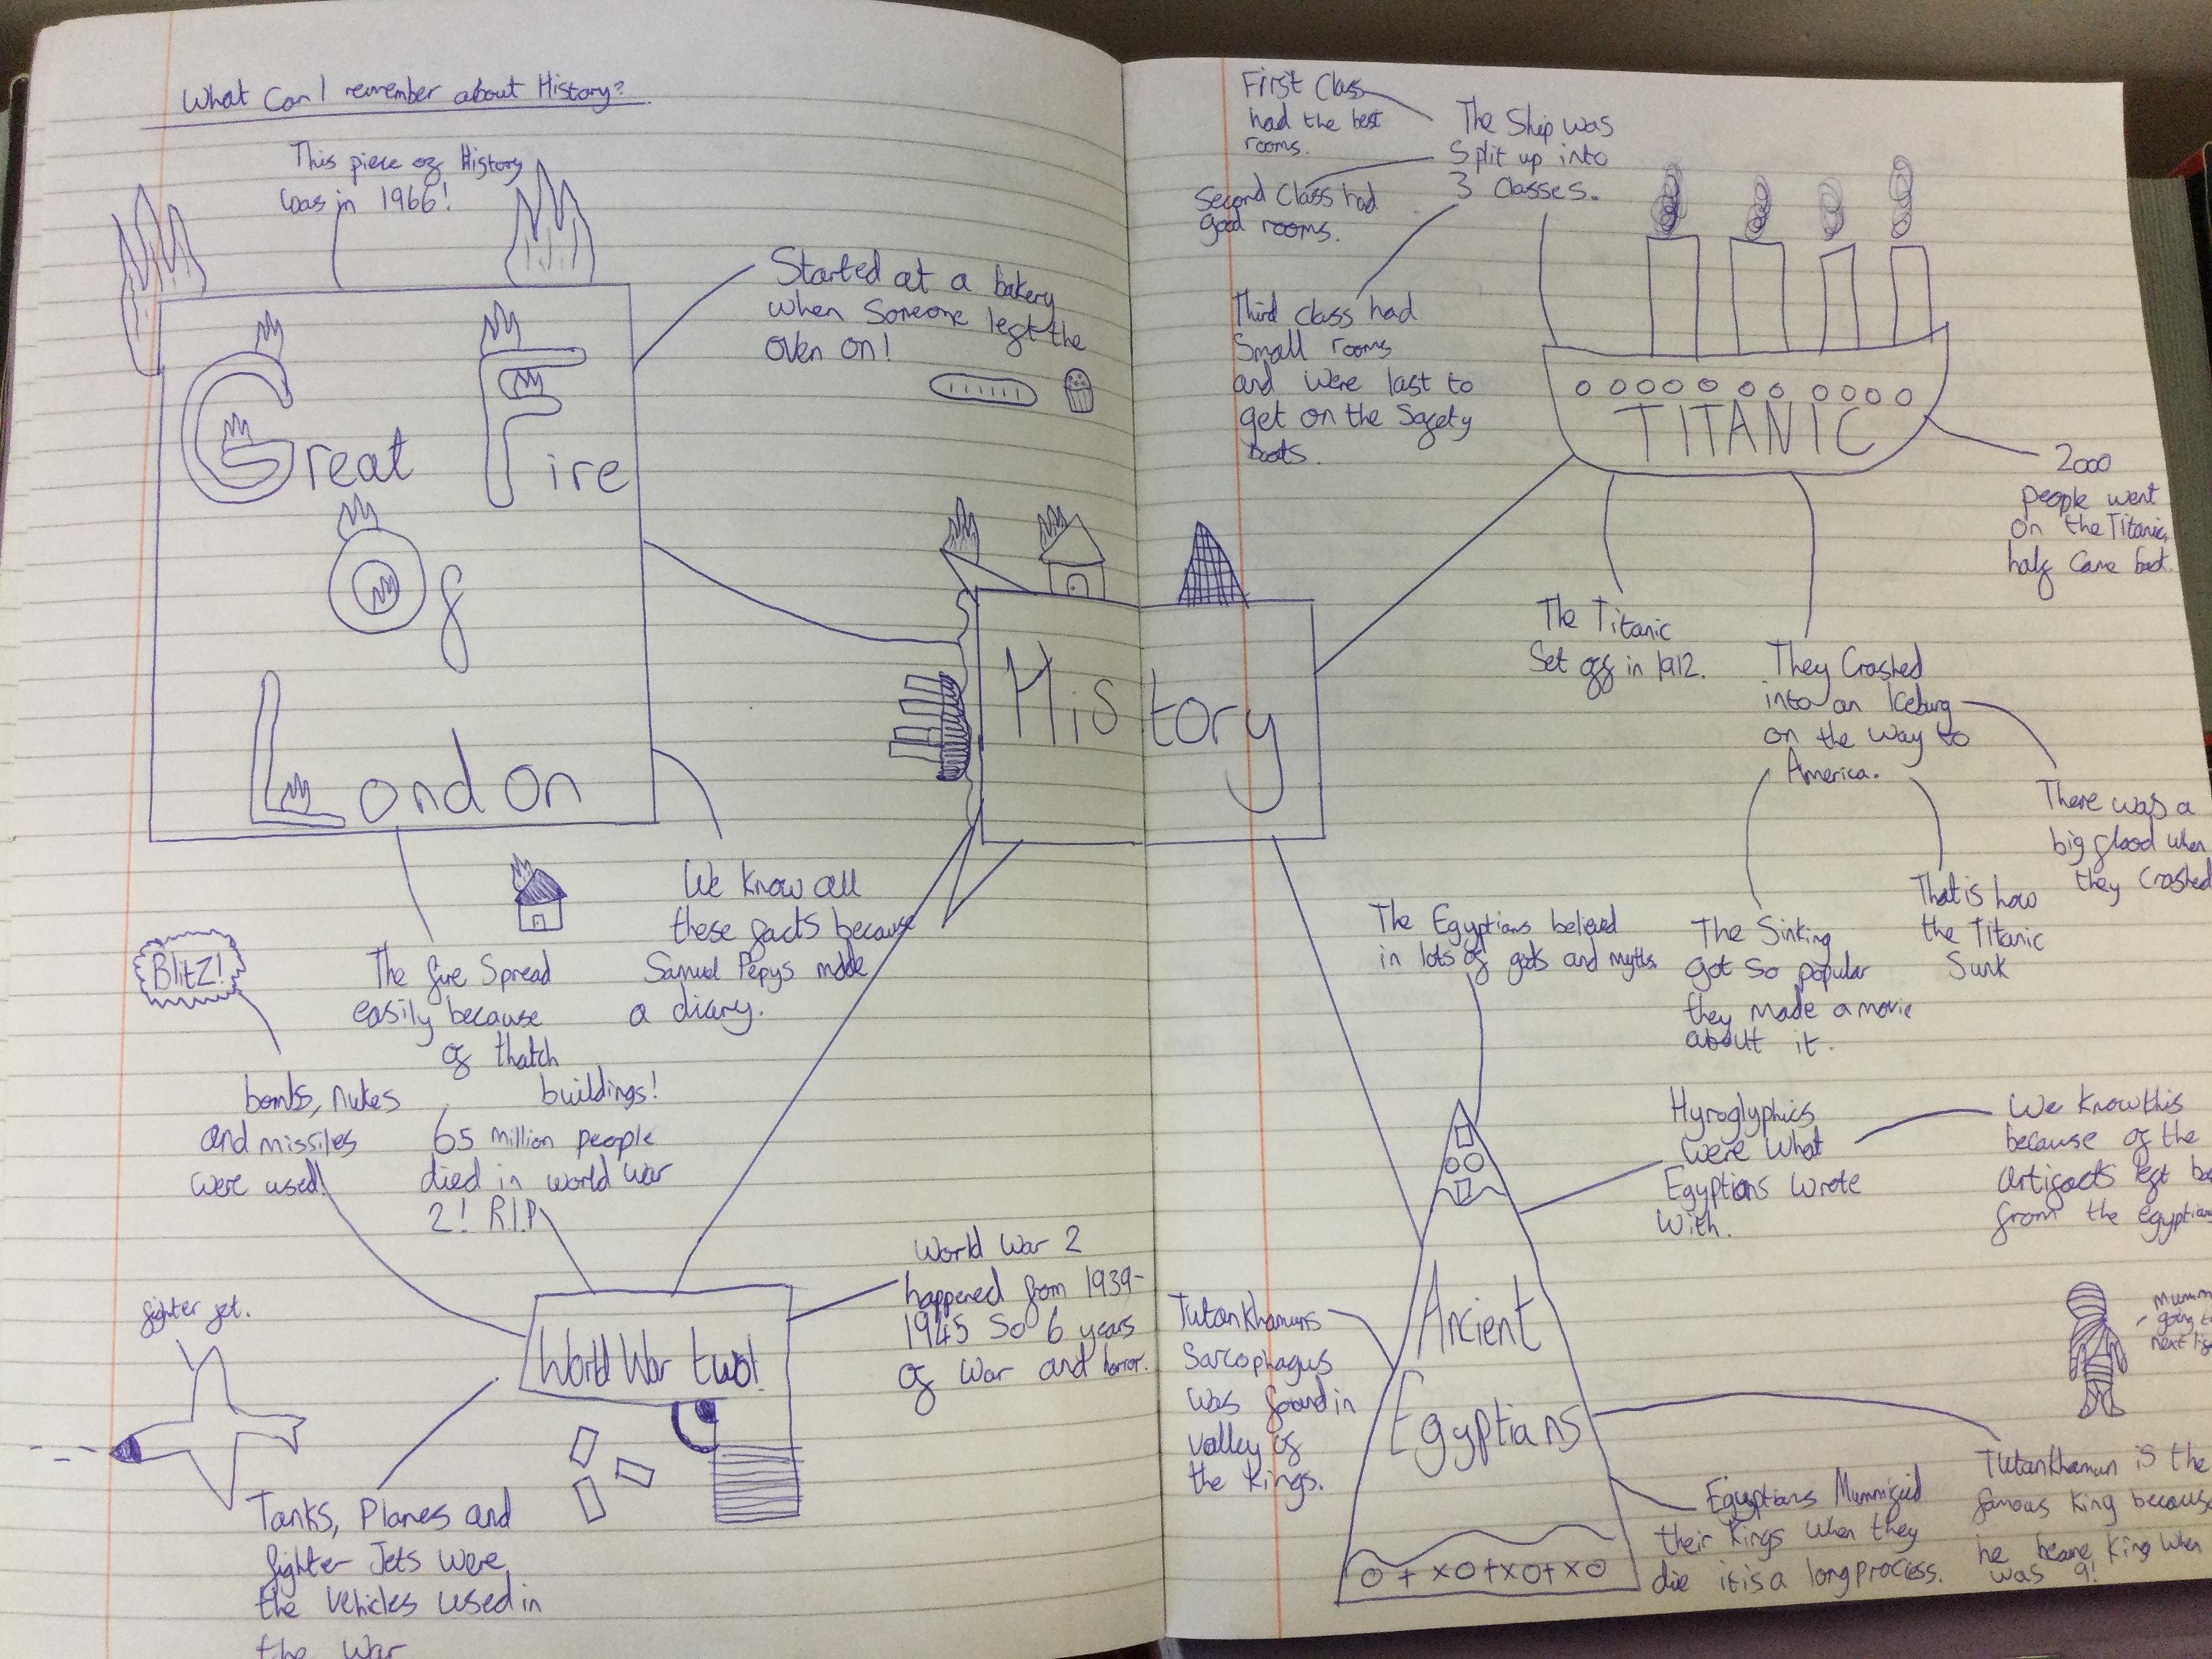 What Can I remember about History?
This piece of History
was in 1966!
Started at a bakery
when Someone left the
oven on!
Great Fire
Of
London
We know all
these facts because
Samuel Pepys made
a diary.
The fire Spread
easily because
of thatch
buildings!
Blitz!
bombs, nukes
and missiles
were used!
65 million people
died in world war
2! R.I.P
World War 2
happened from 1939-
1945 So 6 years
of War and horror.
World War two!
fighter jet.
Tanks, Planes and
fighter Jets were
the Vehicles used in
the War
History
First Class
had the best
rooms.
The Ship was
Split up into
3 Classes.
Second Class had
good rooms.
Third class had
Small rooms
and were last to
get on the Safety
boats.
TITANIC
2000
people went
on the Titanic,
half Came back.
The Titanic
Set off in 1912.
They Crashed
into an Iceburg
on the way to
America.
There was a
big flood when
they Crashed
That is how
the Titanic
Sunk
The Sinking
got so popular
they made a movie
about it.
The Egyptians believed
in lots of gods and myths.
Hyroglyphics
were what
Egyptians wrote
with.
We know this
because of the
artifacts left
from the
Ancient
Egyptians
Tutankhamuns
Sarcophagus
was found in
valley of
the Kings.
going
next
Egyptians Mummified
their Kings when they
die it is a long process.
Tutankhamun is the
famous King because
he became King when
was 9!